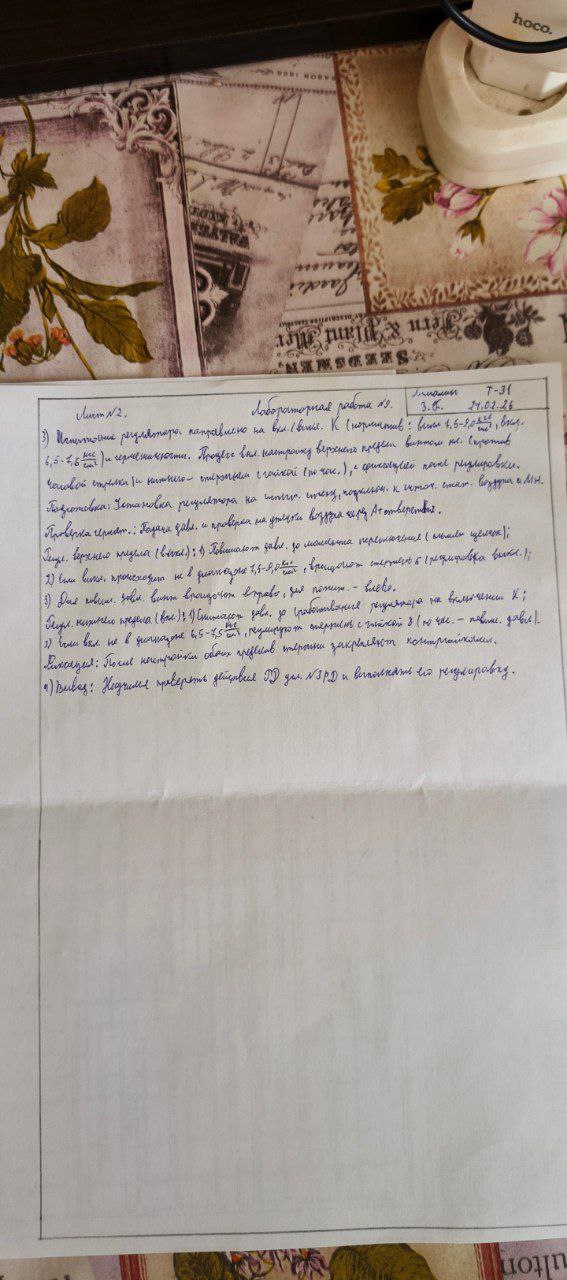 hoco.
SEEDSMEN
Fern & Plant Mer
Лист N2.
Лабораторная работа N9.
Т-31
З.В. 21.02.26
3) Испытание регулятора направлено на вкл/выкл. К (норматив: выкл 7,5-9,0 кгс/см², вкл.
6,5-7,5 кгс/см²) и герметичности. Процесс вкл. настройку верхнего предела винтом кл. (против
часовой стрелки) и нижнего - стержнем с гайкой (по час.), с фиксацией после регулировки.
Подготовка: Установка регулятора на испыт. стенд, подключ. к источ. сжат. воздуха и МН.
Проверка гермет.: Подача давл. и проверка на утечки воздуха через Ат отверстия.
Регул. верхнего предела (выкл): 1) Повышают давл. до момента переключения (слышен щелчок);
2) Если выкл. происходит не в диапазоне 7,5-9,0 кгс/см², вращают стержень 5 (регулировка выкл.);
3) Для повыш. давл. винт вращают вправо, для пониж. - влево.
Регул. нижнего предела (вкл): 1) Снижают давл. до срабатывания регулятора на включение К;
2) Если вкл. не в диапазоне 6,5-7,5 кгс/см², регулируют стержнем с гайкой 3 (по час. - повыш. давл).
Фиксация: После настройки обоих пределов стержни закрепляют контргайками.
4) Вывод: Научился проверять действия РД для N3РД и выполнять его регулировку.